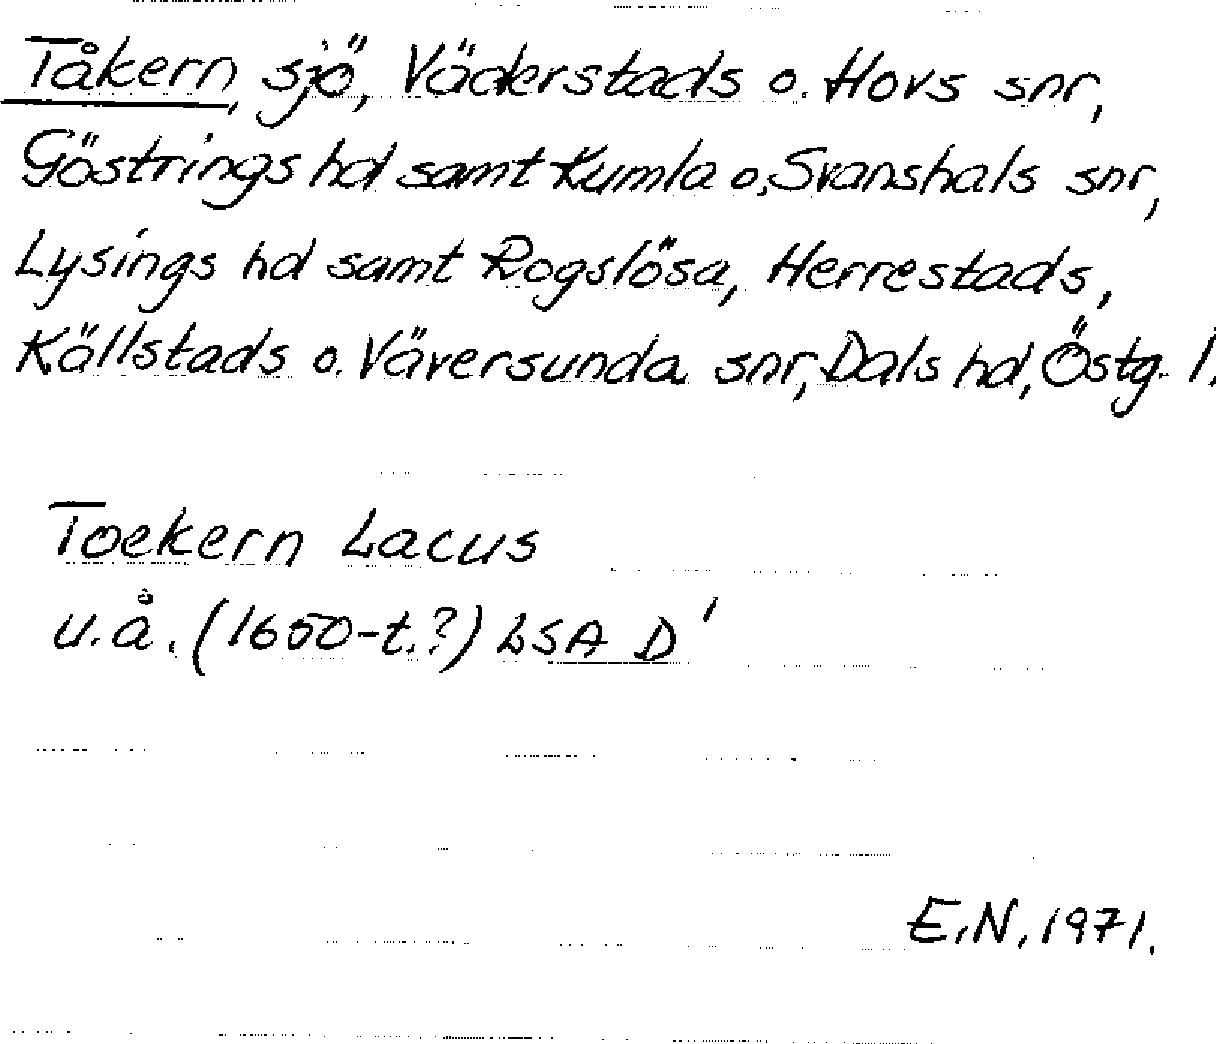 Tåkern, sjö, Väderstads o. Hovs snr,
Göstrings hd samt Kumla o. Svanshals snr,
Lysings hd samt Rogslösa, Herrestads,
Källstads o. Väversunda snr, Dals hd, Östg. l.
Toekern Lacus
u.å. (1600-t.?) LSA D'
E.N. 1971.